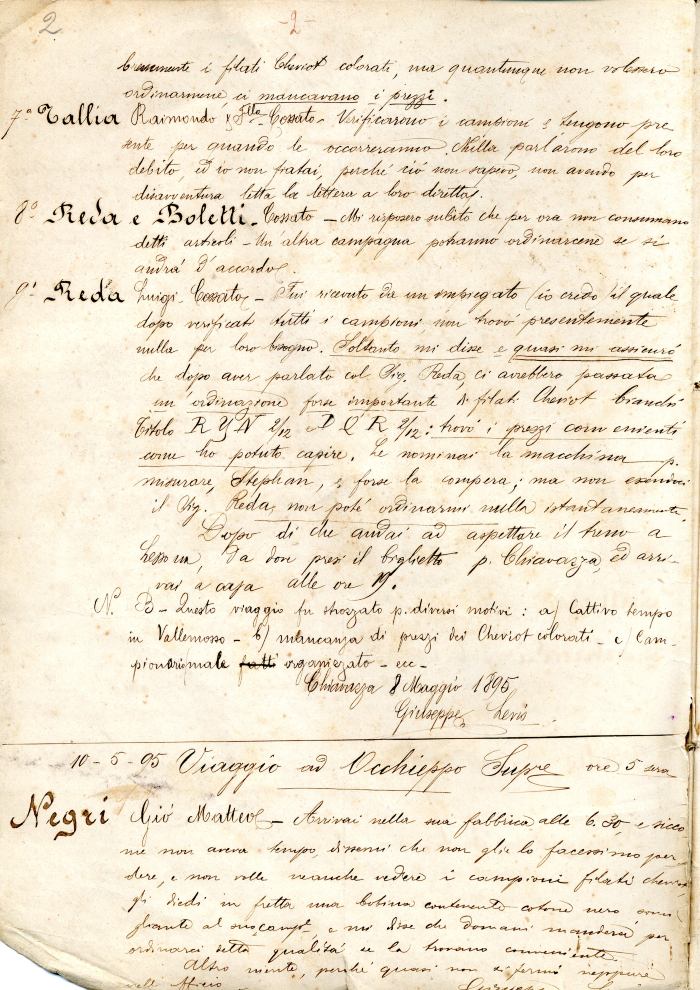 2
-2-
brevemente i filati Cheviot colorati, ma quantunque non volessero
ordinarmene ci mancavano i prezzi.
7° Tallia Raimondo & Flli Cossato - Verificarono i campioni e tengono pre
sente per quando le occorreranno. Nulla parlarono del loro
debito, ed io non fiatai, perché ciò non sapevo, non avendo per
disavventura letta la lettera a loro diretta.
8° Reda e Boletti. Cossato - Mi risposero subito che per ora non consumano
detti articoli - Un'altra campagna potranno ordinarcene se si
andrà d'accordo.
9° Reda Luigi - Cossato - Fui ricevuto da un impiegato (io credo) il quale
dopo verificati tutti i campioni non trovò presentemente
nulla per loro bisogno. Soltanto mi disse e quasi mi assicurò
che dopo aver parlato col Sig. Reda, ci avrebbero passata
un'ordinazione forse importante di filati Cheviot bianchi
Titolo R Y N 2/12 e D Q R 2/12: trovò i prezzi convenienti
come ho potuto capire. Le nominai la macchina p.
misurare, Stephan, e forse la compera; ma non essendoci
il Sig. Reda, non poté ordinarmi nulla istantaneamente.
Dopo di che andai ad aspettare il treno a
Lessona, da dove presi il biglietto p. Chiavazza, ed arri-
vai a casa alle ore 19.
N. B - Questo viaggio fu strozzato p. diversi motivi: a) Cattivo tempo
in Vallemosso - b) mancanza di prezzi dei Cheviot colorati - c) Cam-
pionario male fatti organizzato - ecc -
Chiavazza 8 Maggio 1895
Giuseppe Levis
10-5-95 Viaggio ad Occhieppo Supre ore 5 sera
Negri Gió Matteo - Arrivai nella sua fabbrica alle 6.30, e sicco
me non aveva tempo, dissemi che non glie lo facessimo per
dere, e non volle neanche vedere i campioni filati cheviot,
gli diedi in fretta una bobina contenente cotone nero somi
gliante al suo camp°, e mi disse che domani manderà per
ordinarci detta qualità se la trovano conveniente.
Altro niente, perché quasi non si fermò neppure
nell'Ufficio -